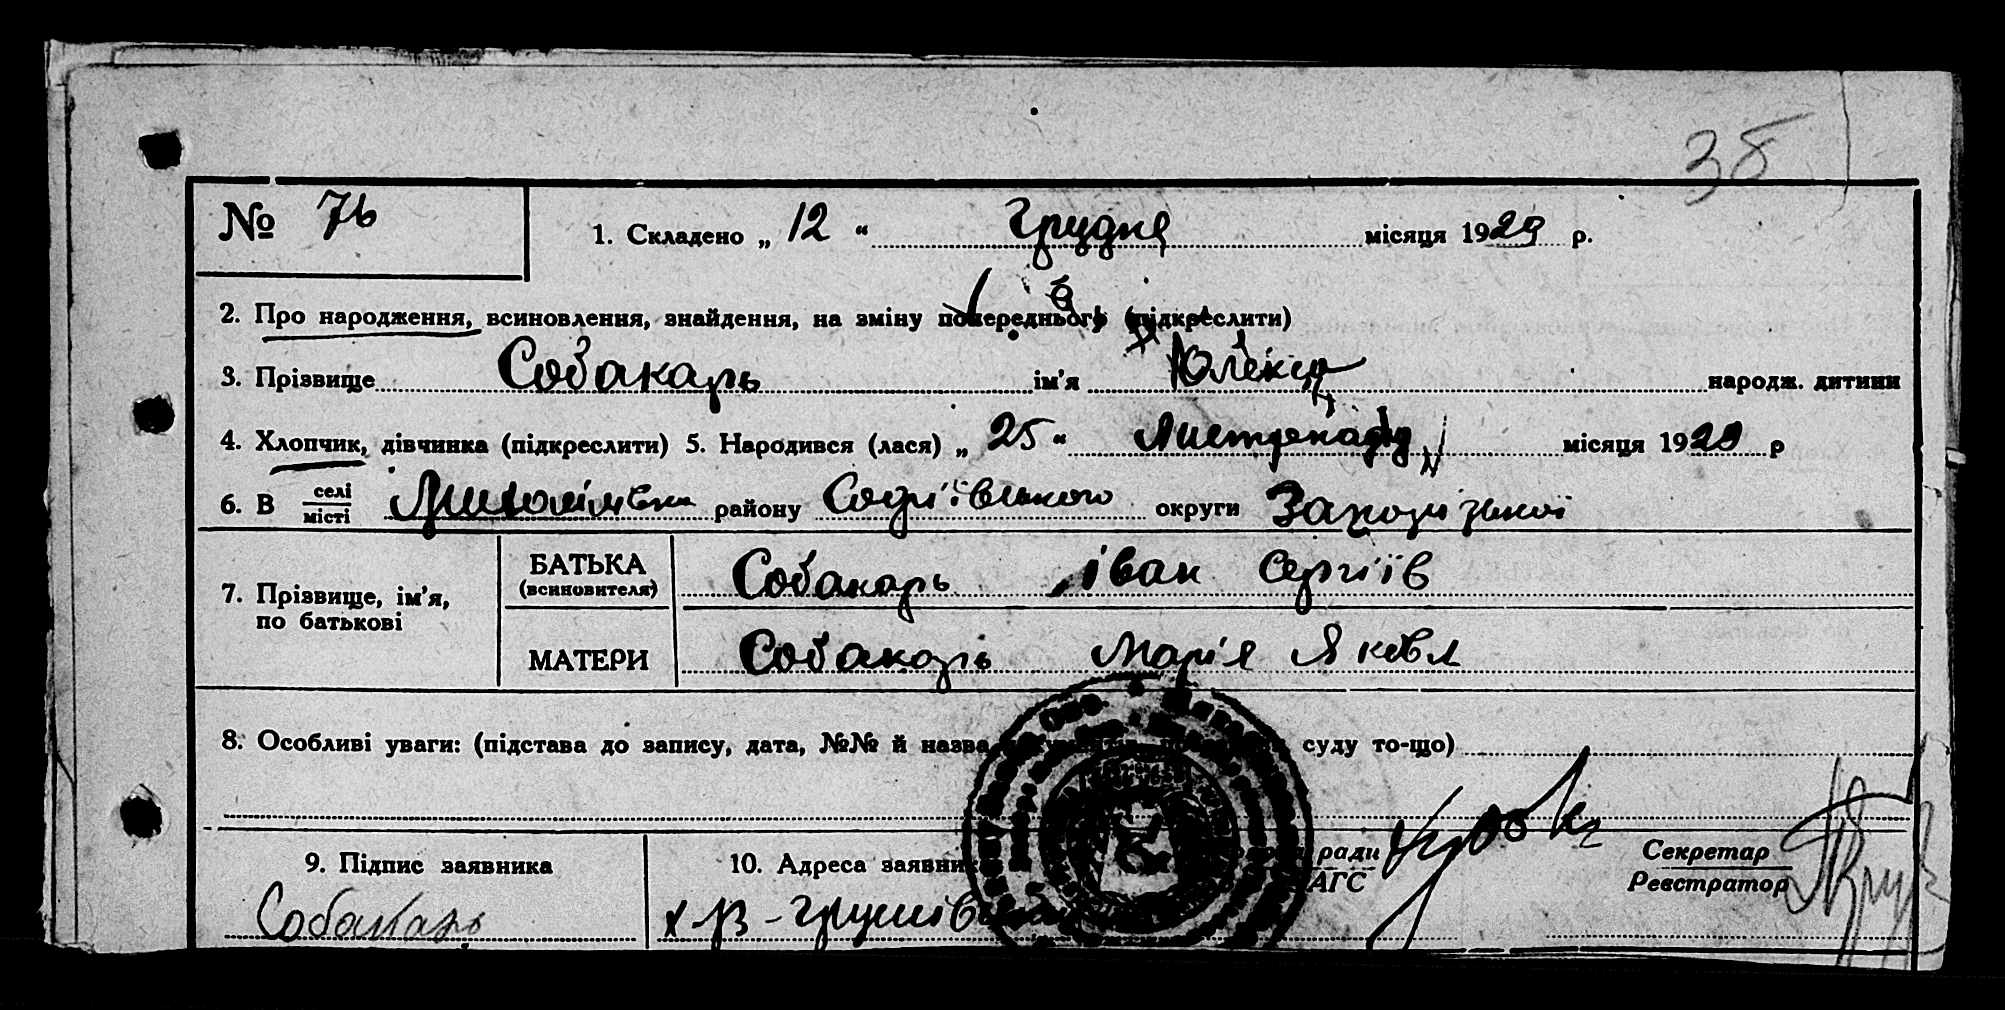 38
№ 76 1. Складено „ 12 “ Грудня місяця 1929 р.
2. Про народження, всиновлення, знайдення, на зміну попереднього (підкреслити)
3. Прізвище Собакарь ім’я Олекса народж. дитини
4. Хлопчик, дівчинка (підкреслити) 5. Народився (лася) „ 25 “ Листопад місяця 1929 р
6. В селі місті району Софіївського округи Запорізької
7. Прізвище, ім’я, по батькові
БАТЬКА (всиновителя) Собакарь Іван Сергіїв
МАТЕРИ Собакарь Марія Яковл
8. Особливі уваги: (підстава до запису, дата, №№ й назва суду то-що)
9. Підпис заявника 10. Адреса заявни ради Секретар
АГС Реєстратор
Собакарь